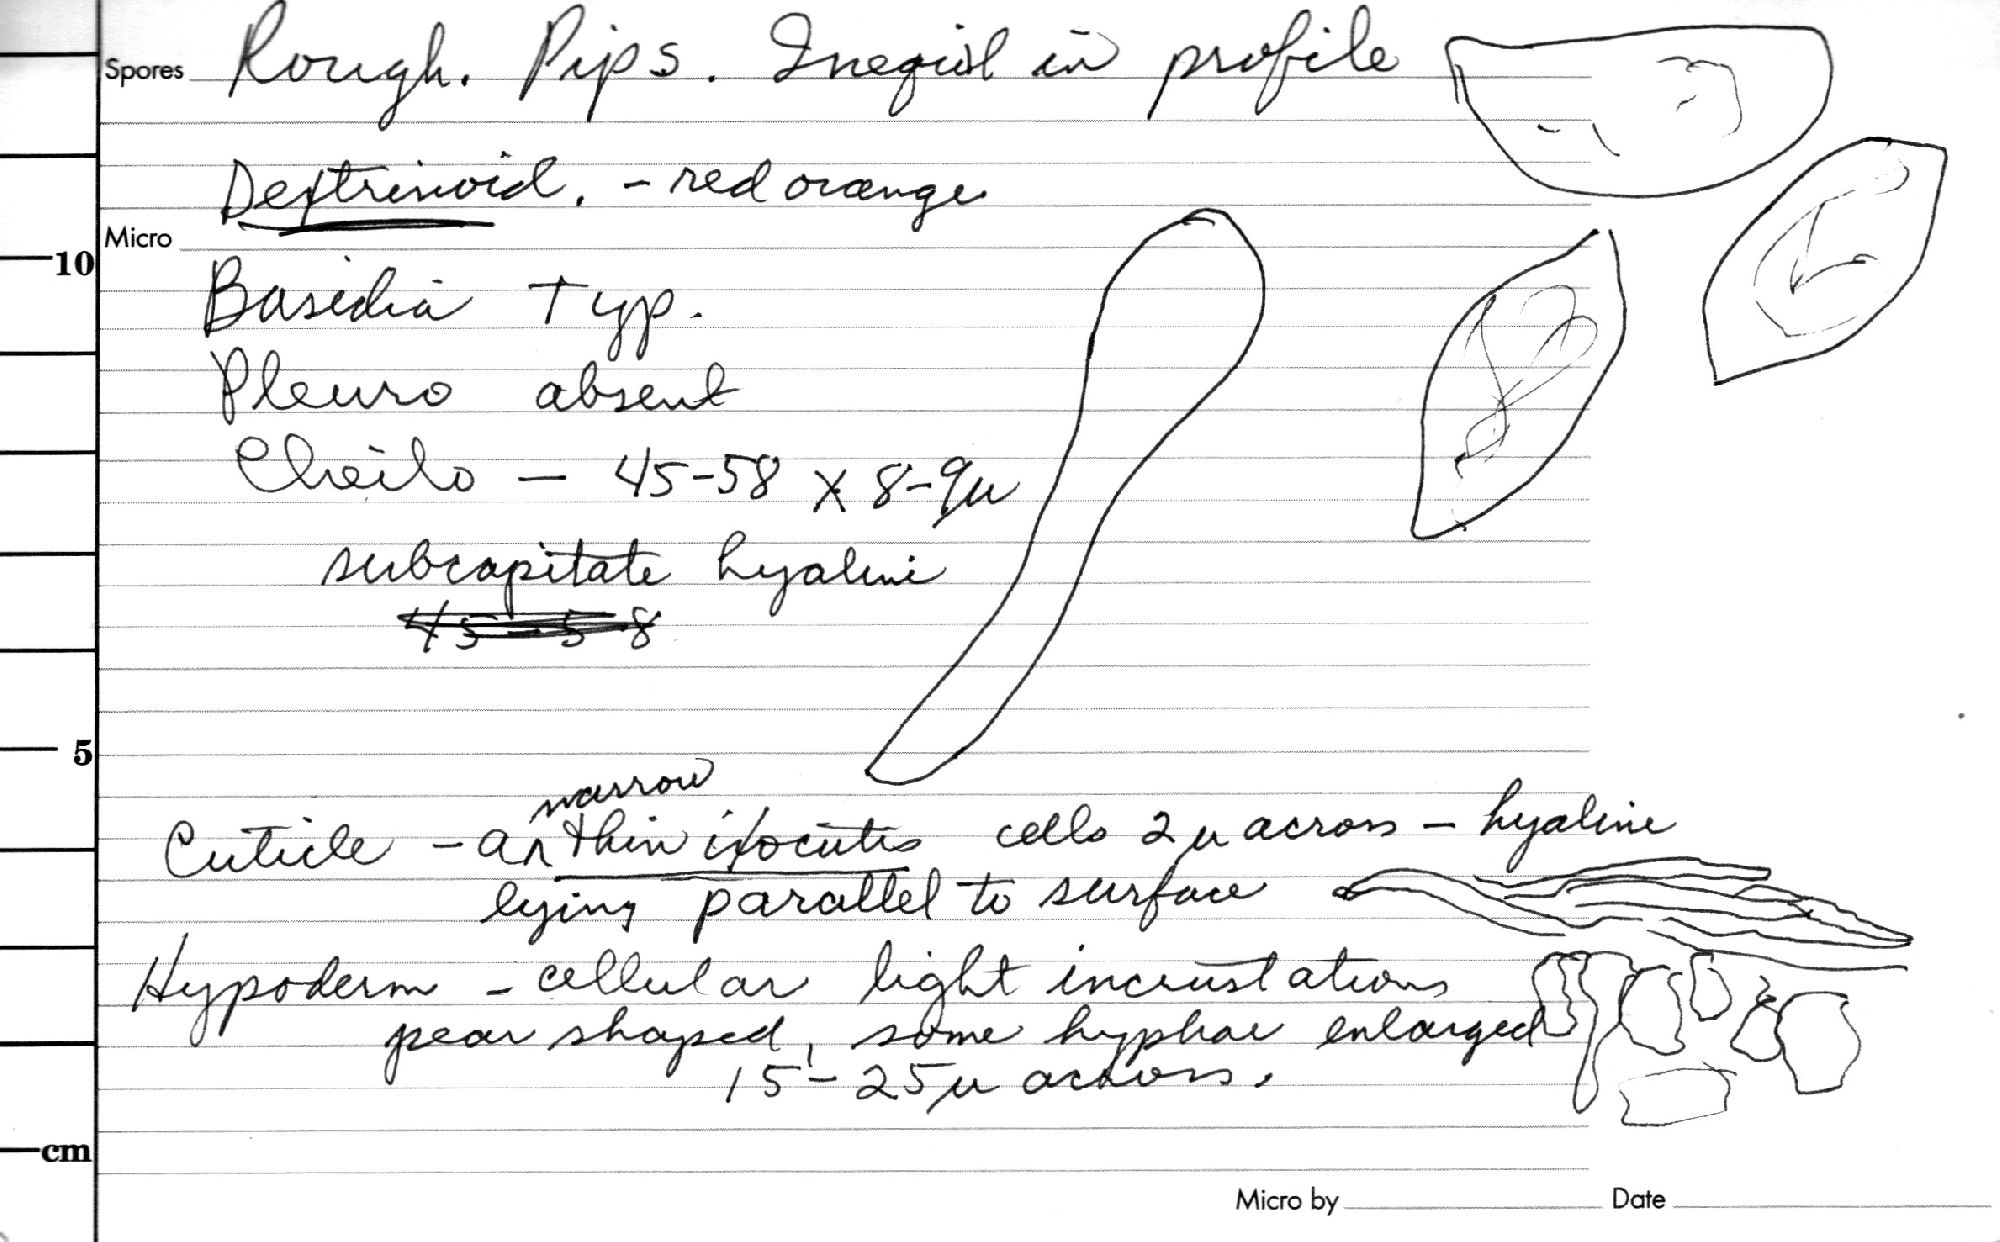 Spores Rough. Pips. Inequil in profile
Dextrinoid. - red orange
Micro
10
Basidia Typ.
Pleuro absent
Cheilo — 45-58 X 8-9µ
subcapitate hyaline
45-58
5
narrow
Cuticle - an thin ixocutis cells 2µ across - hyaline
lying parallel to surface
Hypoderm - cellular light incrustations
pear shaped, some hyphae enlarged
15-25µ across.
cm
Micro by Date